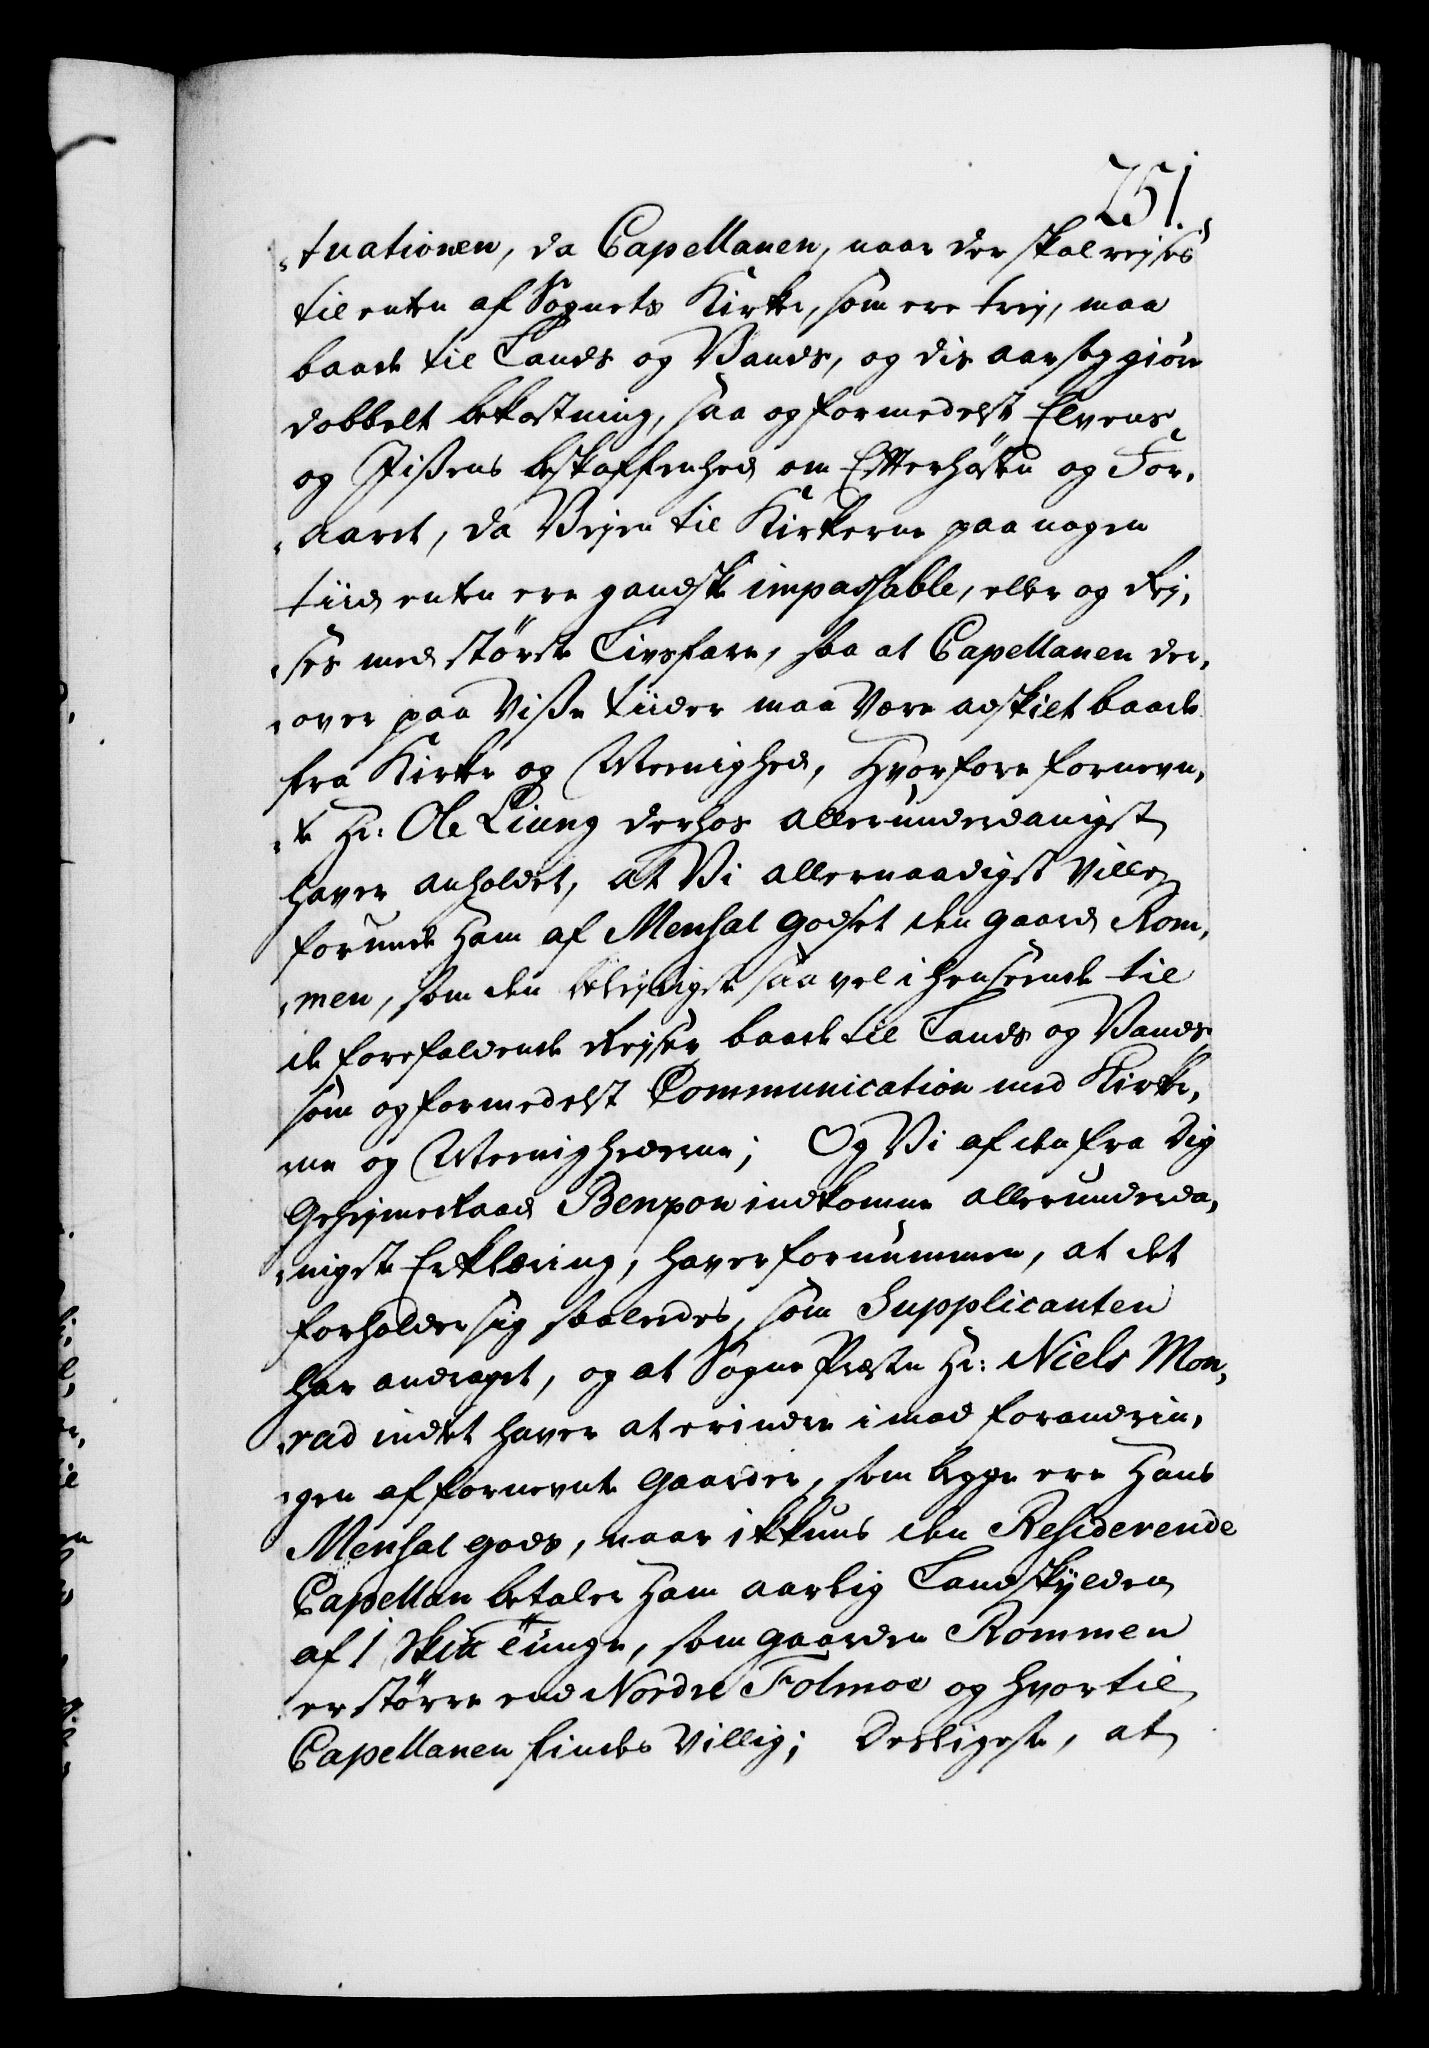 251.
„tuationen, da Capellanen, naar der skal reises
til enten af Sognets Kirke, som ere trej, maa
baade til Lands og Vands, og dis aarsag giøre
dobbelt bekostning, saa og formedelst Elvens,
og Jisens beskaffenhed om Efterhösten og For,
„aaret, da Vejen til Kirkerne paa nogen
tiid enten ere gandske impassable, eller og Rej,
„ses med störste Livsfare, saa at Capellanen der,
„over paa Visse tiider maa Være adskilt baade
fra Kirke og Meenighed, Hvorfore fornevn,
„te Hr: Ole Liung derhos allerunderdanigst
haver anholdet, at Vi allernaadigst Ville
forunde Ham af Mensal godset den gaard Rom,
„men, som den belejligste saavel i henseende til
de forefaldende Rejser baade til Lands og Vands
som og formedelst Communication med Kirke,
„rne og Meenighederne; Og Vi af den fra Dig
Gehejmeraad Benzon indkomne allerunderda,
„nigste Erklæring, haver fornummen, at det
forholder sig saaledes, som Supplicanten
har andraget, og at Sogne Præsten Hr: Niels Mon,
„rad indtet haver at erindre imod forandrin,
„gen af fornevnte Gaarder, som begge ere Hans
Mensal gods, naar ikkuns den Residerende
Capellan betaler Ham aarlig Landskylden
af 1 Skin Tunge, som gaarden Rommen
er större end Nordre Folmoe og hvortil
Capellanen findes Villig; Desligeste, at